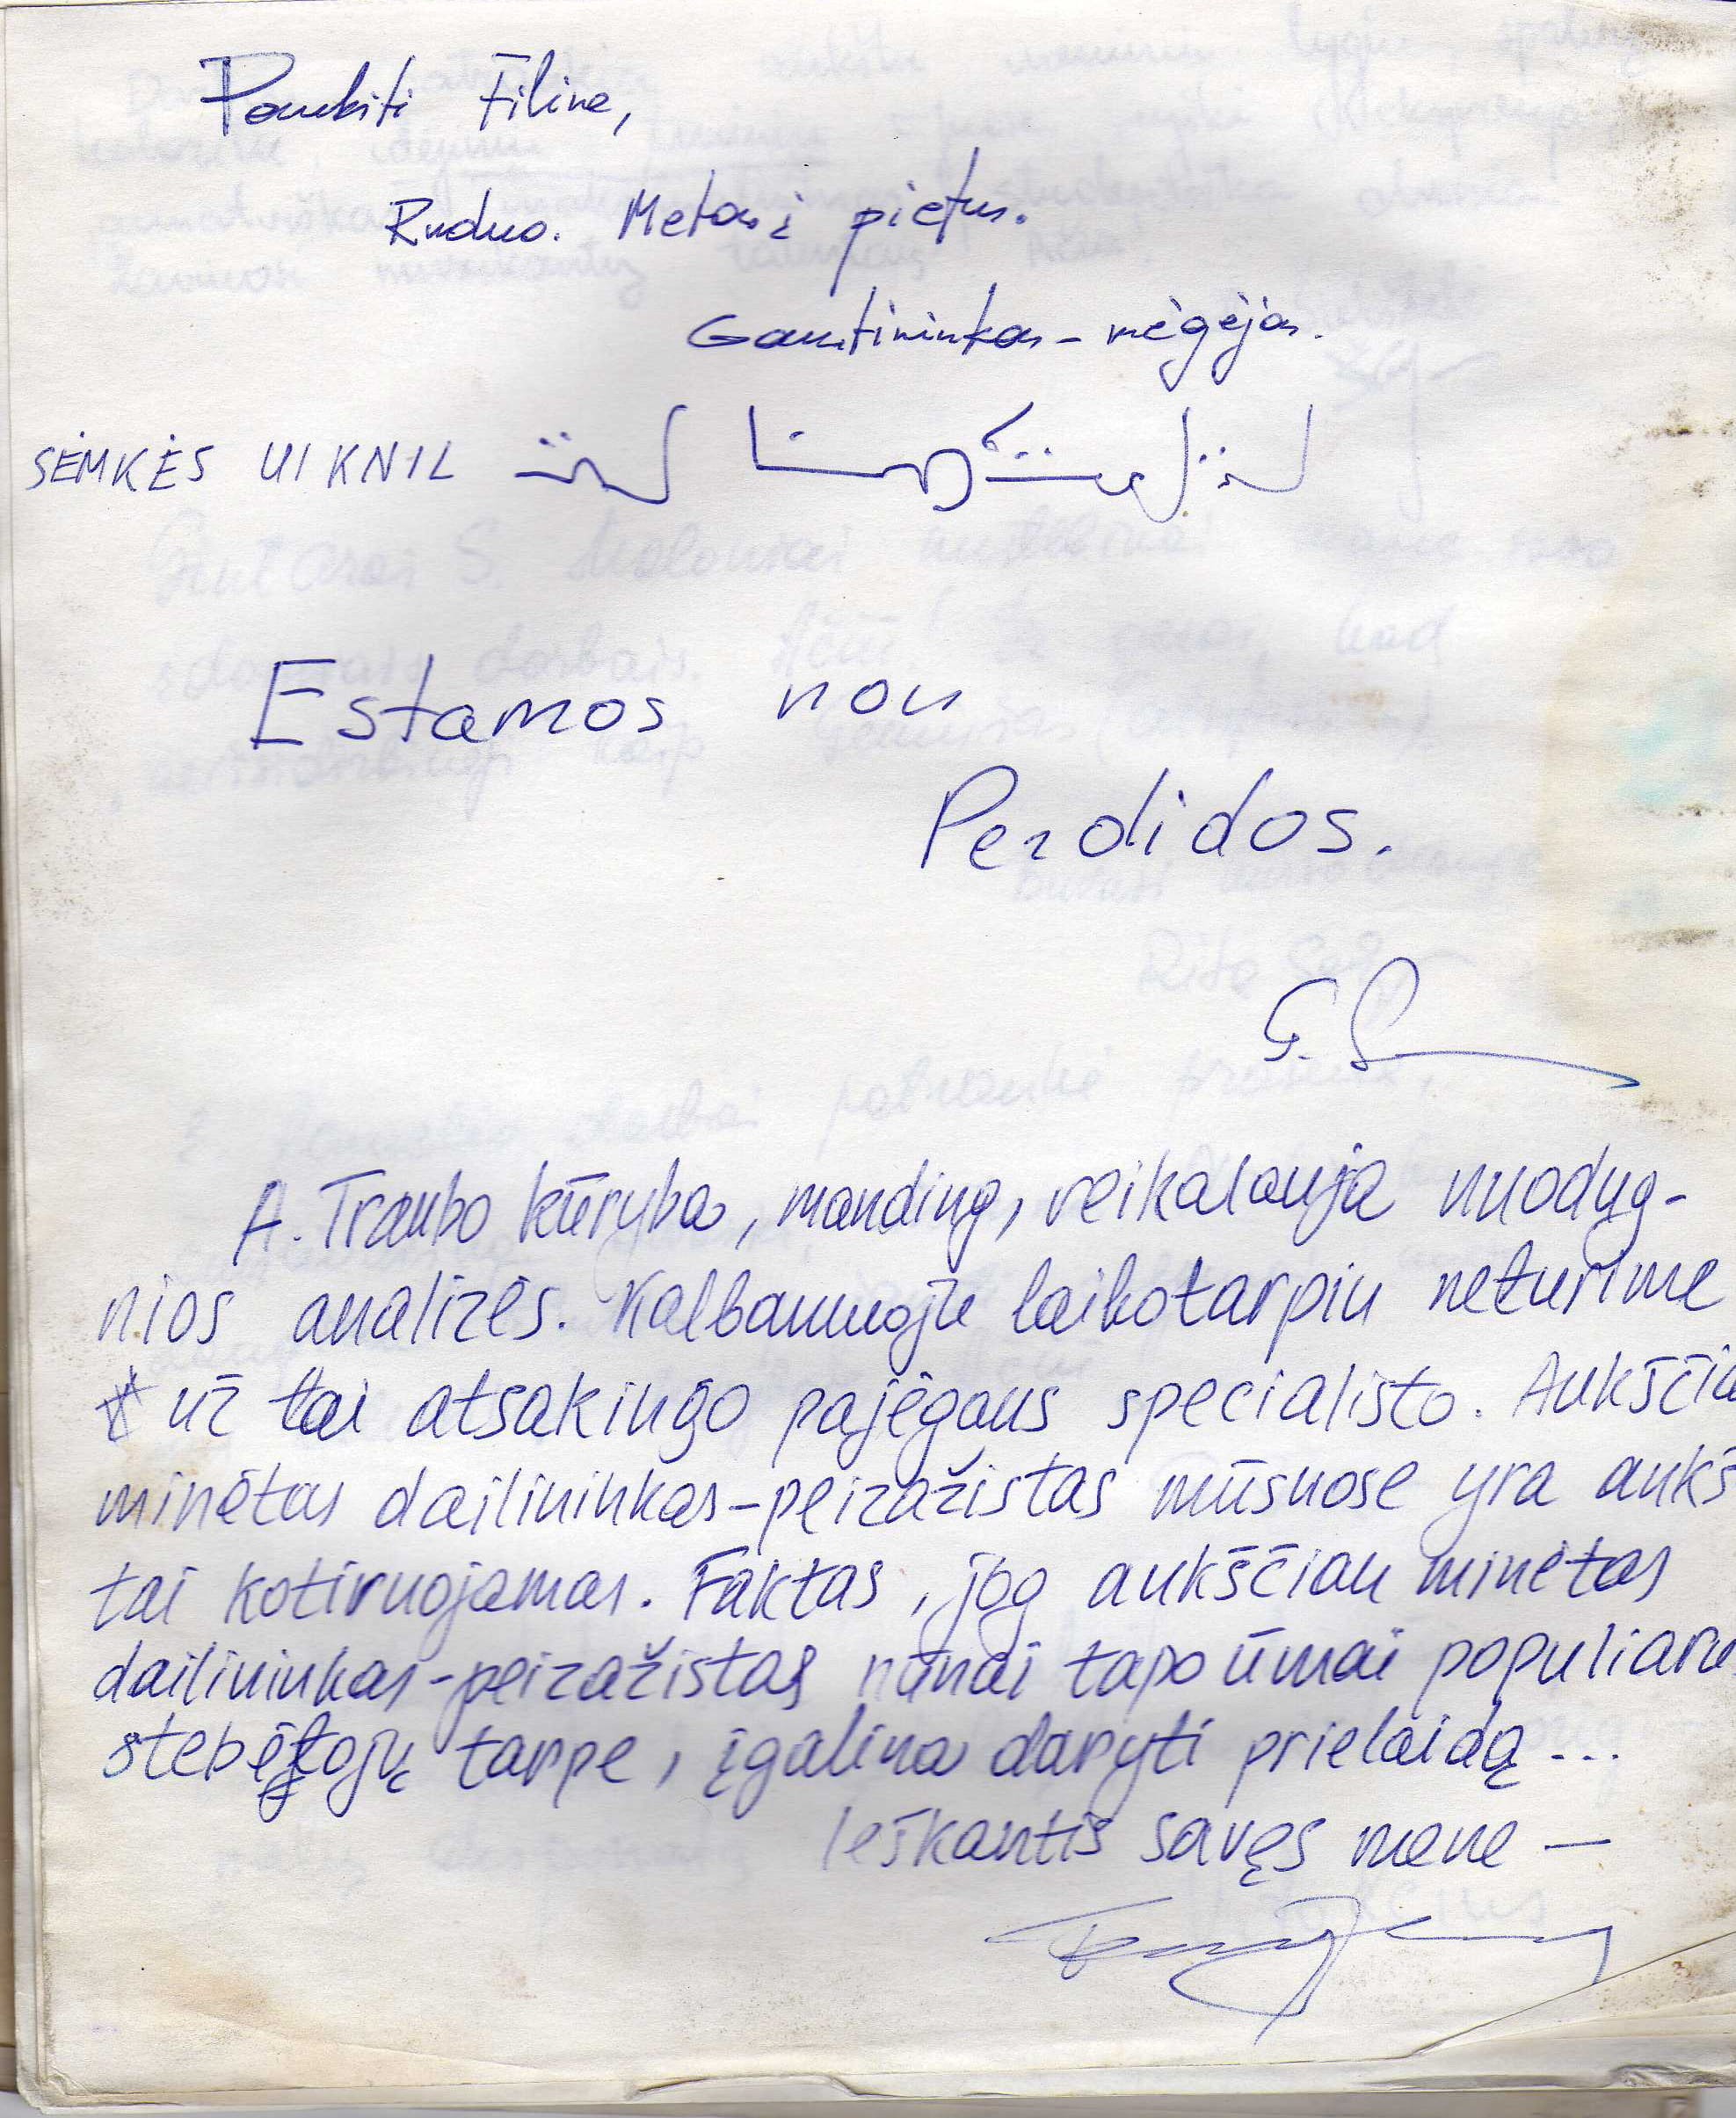 Paukšti Filine,
Ruduo. Metas į pietus.
Gamtininkas-mėgėjas.
SĖMKĖS UIKNIL
Estamos non
Perdidos.
G.
A. Traubo kūryba, manding, reikalauja nuodug-
nios analizės. Kalbamuoju laikotarpiu neturime
už tai atsakingo pajėgaus specialisto. Aukščia
minėtas dailininkas-peizažistas mūsuose yra aukš
tai kotiruojamas. Faktas, jog aukščiau minėtas
dailininkas-peizažistas nūnai tapo ūmai populiaru
stebėtojų tarpe, įgalina daryti prielaidą...
Ieškantis savęs mene —